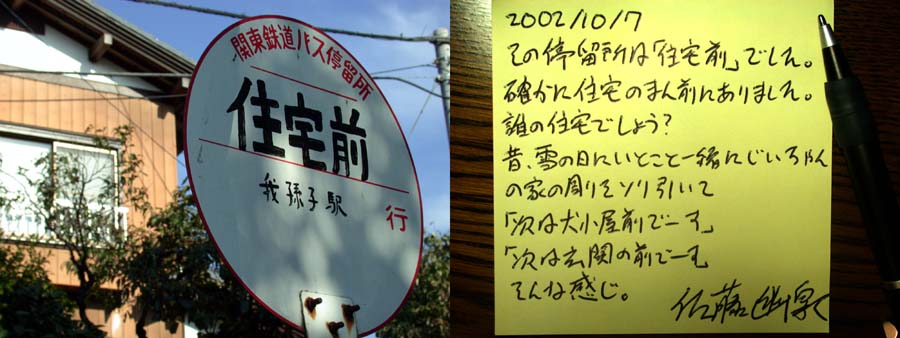 関東鉄道バス停留所
住宅前
我孫子駅
行
2002/10/7
その停留所は「住宅前」でした。
確かに住宅のまん前にありました。
誰の住宅でしょう?
昔、雪の日にいとこと一緒にじいちゃん
の家の周りをソリ引いて
「次は犬小屋前でーす」
「次は玄関の前でーす」
そんな感じ。
佐藤